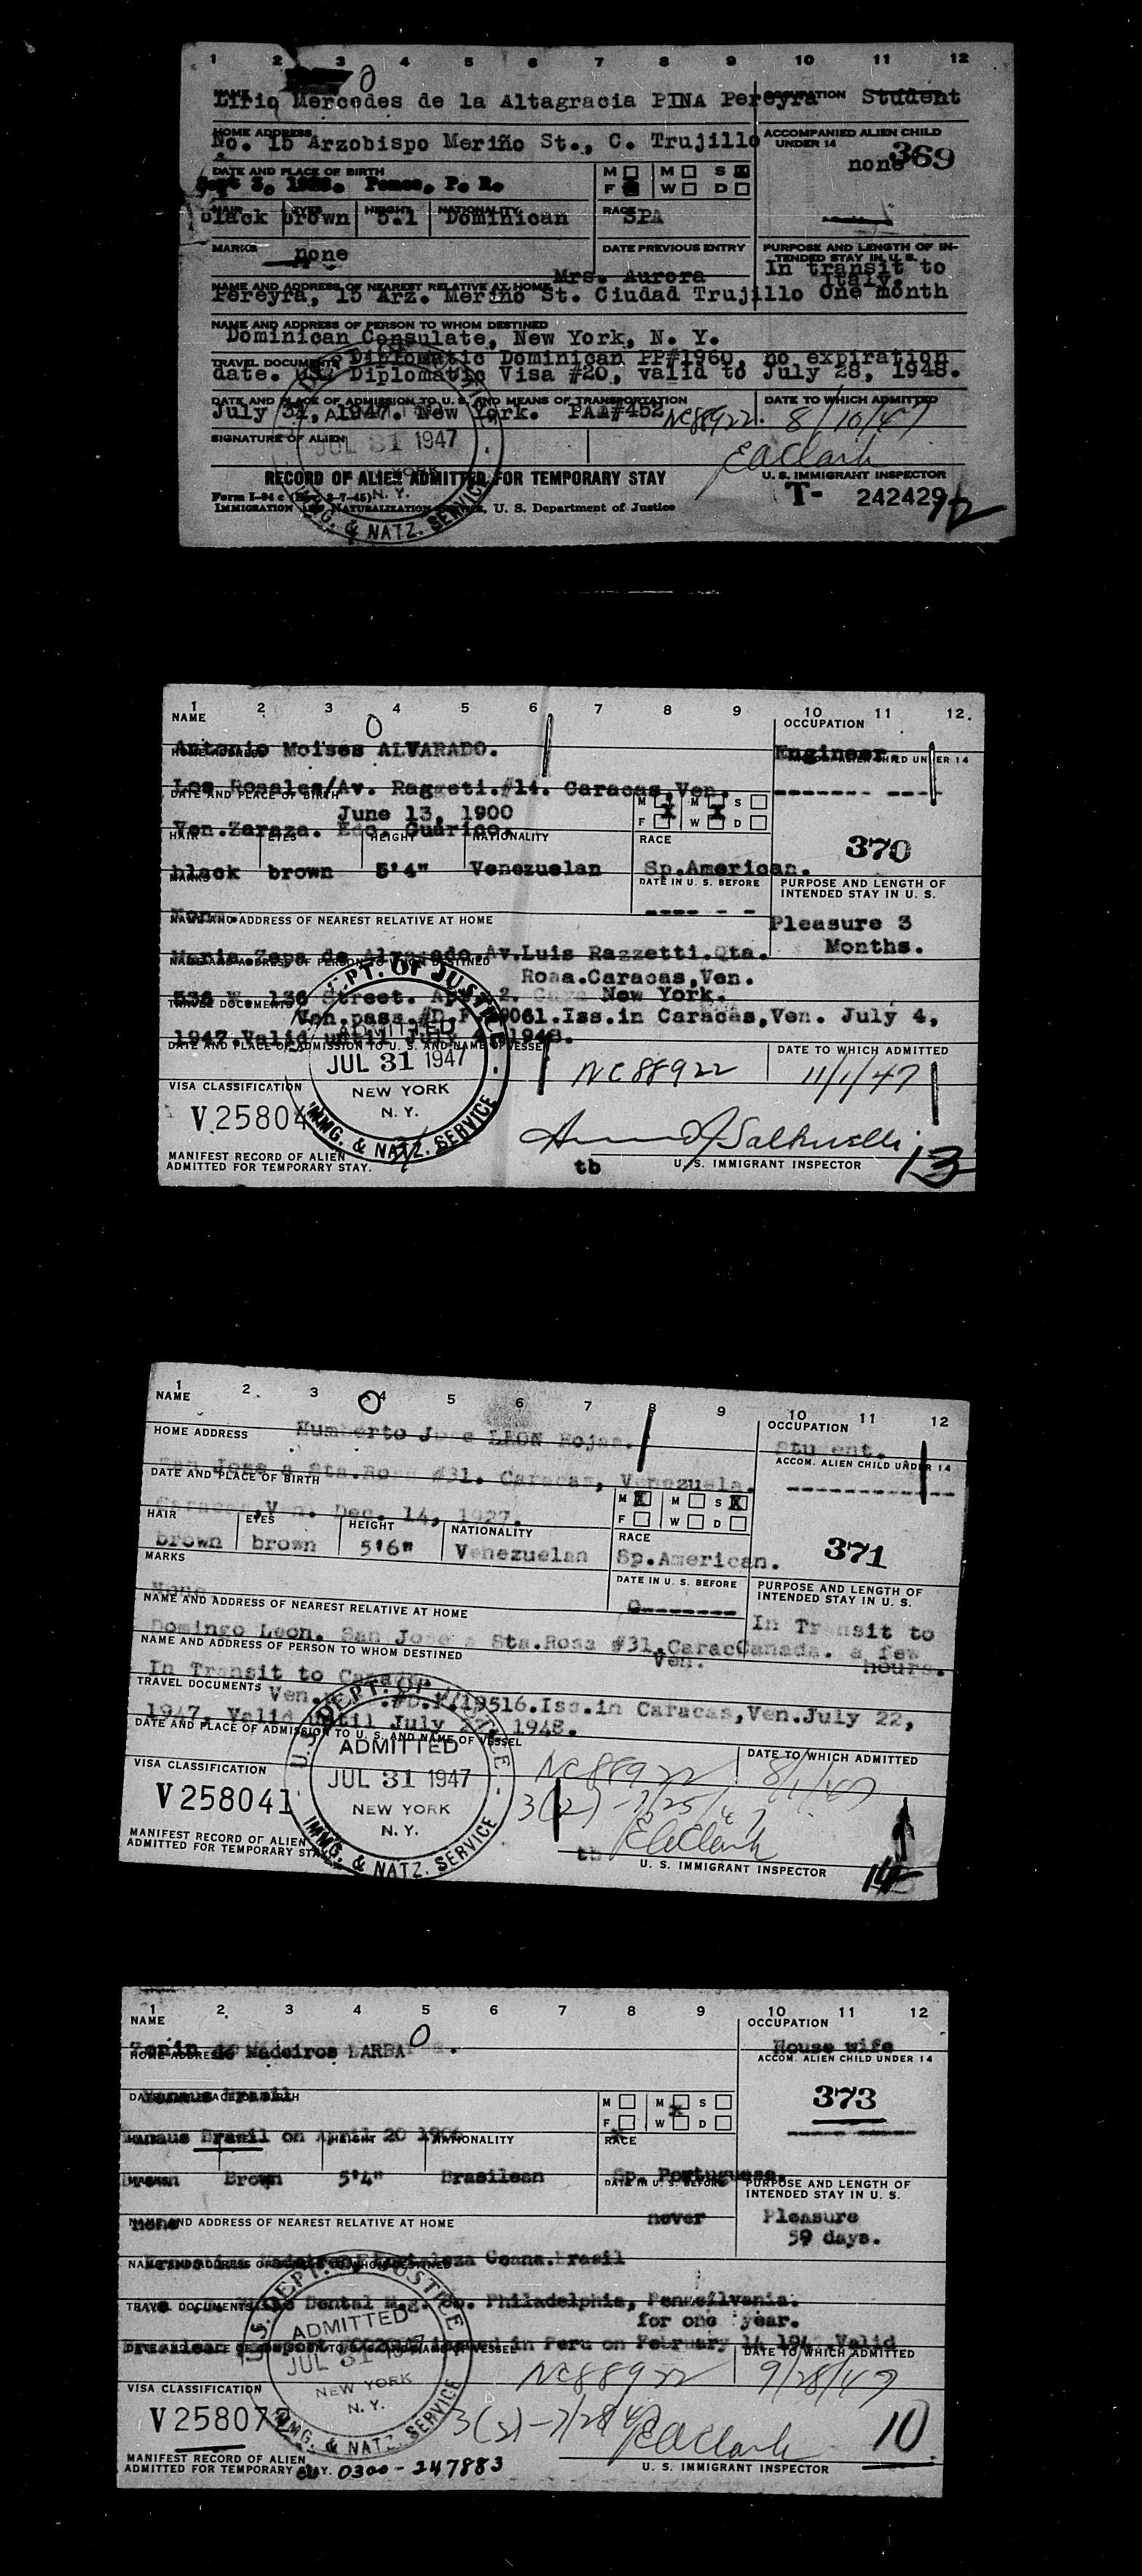 1 2 3 4 5 6 7 8 9 10 11 12
0
NAME OCCUPATION
Lirio Mercedes de la Altagracia PINA Pereyra Student
HOME ADDRESS ACCOMPANIED ALIEN CHILD UNDER 14
No. 15 Arzobispo Meriño St., C. Trujillo none 369
DATE AND PLACE OF BIRTH M M S
Ponce, P. R. F W D
HAIR EYES HEIGHT NATIONALITY RACE
black brown 5.1 Dominican SPA
MARKS DATE PREVIOUS ENTRY PURPOSE AND LENGTH OF INTENDED STAY IN U. S.
none In transit to Italy.
Mrs. Aurora
NAME AND ADDRESS OF NEAREST RELATIVE AT HOME
Pereyra, 15 Arz. Meriño St. Ciudad Trujillo One month
NAME AND ADDRESS OF PERSON TO WHOM DESTINED
Dominican Consulate, New York, N. Y.
TRAVEL DOCUMENTS Diplomatic Dominican PP#1960, no expiration
date. Diplomatic Visa #20, valid to July 28, 1948.
DATE AND PLACE OF ADMISSION TO U. S. AND MEANS OF TRANSPORTATION DATE TO WHICH ADMITTED
July 31, 1947. New York. PAA#452 NC88922. 8/10/47
SIGNATURE OF ALIEN JUL 31 1947 EAClark
RECORD OF ALIEN ADMITTED FOR TEMPORARY STAY U. S. IMMIGRANT INSPECTOR
N. Y. T- 242429 12
IMMIGRATION AND NATURALIZATION SERVICE, U. S. Department of Justice
IMMG. & NATZ. SERVICE
1 2 3 4 5 6 7 8 9 10 11 12.
NAME 0 OCCUPATION
Antonio Moises ALVARADO. Engineer.
HOME ADDRESS ACCOM. ALIEN CHILD UNDER 14
Los Rosales/Av. Raggeti.#14. Caracas,Ven.
DATE AND PLACE OF BIRTH M M S
June 13, 1900 F W D
Ven.Zaraza. Edo. Guarico. 370
HAIR EYES HEIGHT NATIONALITY RACE
black brown 5'4" Venezuelan Sp.American.
MARKS DATE IN U. S. BEFORE PURPOSE AND LENGTH OF INTENDED STAY IN U. S.
NAME AND ADDRESS OF NEAREST RELATIVE AT HOME Pleasure 3 Months.
Maria Zapa de Alvarado.Av.Luis Razzetti.Qta.
NAME AND ADDRESS OF PERSON TO WHOM DESTINED
Rosa.Caracas,Ven.
536 W. 136 Street. New York.
TRAVEL DOCUMENTS
Ven.pass. Iss.in Caracas,Ven. July 4,
1947.Valid until July 1948.
DATE AND PLACE OF ADMISSION TO U. S. AND NAME OF VESSEL DATE TO WHICH ADMITTED
DEPT. OF JUSTICE ADMITTED JUL 31 1947 NEW YORK N. Y. IMMG. & NATZ. SERVICE
NC88922 11/1/47
VISA CLASSIFICATION
V 25804
MANIFEST RECORD OF ALIEN ADMITTED FOR TEMPORARY STAY.
tb U. S. IMMIGRANT INSPECTOR 13
1 2. 3 0 4 5 6 7 8 9 10 11 12
NAME OCCUPATION
Humberto Jose LEON Rojas. Student.
HOME ADDRESS ACCOM. ALIEN CHILD UNDER 14
San Jose a Sta.Rosa #31. Caracas, Venezuela.
DATE AND PLACE OF BIRTH M M S
Caracas,Ven. Dec. 14, 1927. F W D
HAIR EYES HEIGHT NATIONALITY RACE 371
brown brown 5'6" Venezuelan Sp.American.
MARKS DATE IN U. S. BEFORE PURPOSE AND LENGTH OF INTENDED STAY IN U. S.
None
NAME AND ADDRESS OF NEAREST RELATIVE AT HOME In Transit to
Domingo Leon. San Jose a Sta.Rosa #31.Carac Canada. a few
Ven. hours.
NAME AND ADDRESS OF PERSON TO WHOM DESTINED
In Transit to Canada
TRAVEL DOCUMENTS Ven. #D.F/19516.Iss.in Caracas,Ven.July 22,
1947. Valid until July 22, 1948.
DATE AND PLACE OF ADMISSION TO U. S. AND NAME OF VESSEL DATE TO WHICH ADMITTED
U. S. DEPT. OF JUSTICE ADMITTED JUL 31 1947 NEW YORK N. Y. IMMG. & NATZ. SERVICE
NC88922 8/1/47
VISA CLASSIFICATION 3(2)-7/25/47
V 258041 EAClark
MANIFEST RECORD OF ALIEN ADMITTED FOR TEMPORARY STAY
tb U. S. IMMIGRANT INSPECTOR 14
1 2. 3 4 5 6 7 8 9 10 11 12
NAME 0 OCCUPATION
de Madeiros House wife
HOME ADDRESS ACCOM. ALIEN CHILD UNDER 14
Brasil 373
DATE AND PLACE OF BIRTH M M S
Manaus Brasil on April 20 F W D
HAIR EYES HEIGHT NATIONALITY RACE
Brown Brown 5'4" Brasilean Sp. Portuguese.
MARKS DATE IN U. S. BEFORE PURPOSE AND LENGTH OF INTENDED STAY IN U. S.
none never Pleasure
NAME AND ADDRESS OF NEAREST RELATIVE AT HOME 59 days.
Brasil
NAME AND ADDRESS OF PERSON TO WHOM DESTINED
Dental Philadelphia, Pennsilvania.
TRAVEL DOCUMENTS for one year.
in Peru on February 14 Valid
DATE TO WHICH ADMITTED
U. S. DEPT. OF JUSTICE ADMITTED JUL 31 NEW YORK N. Y. IMMG. & NATZ. SERVICE
NC88922 9/28/47
VISA CLASSIFICATION
V 25807 EAClark 10
MANIFEST RECORD OF ALIEN ADMITTED FOR TEMPORARY STAY. 0300-247883
U. S. IMMIGRANT INSPECTOR